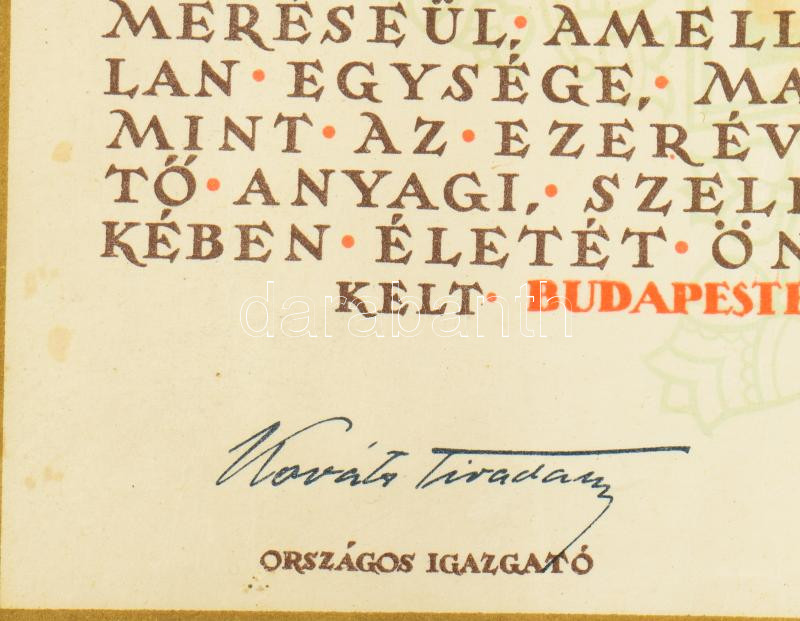 MERÉSEÜL, · AMELL
LAN · EGYSÉGE, · MA
MINT · AZ · EZERÉV
TŐ · ANYAGI, · SZELL
KÉBEN · ÉLETÉT · ÖN
KELT · BUDAPEST
darabanth
Kováts Tivadar
ORSZÁGOS IGAZGATÓ